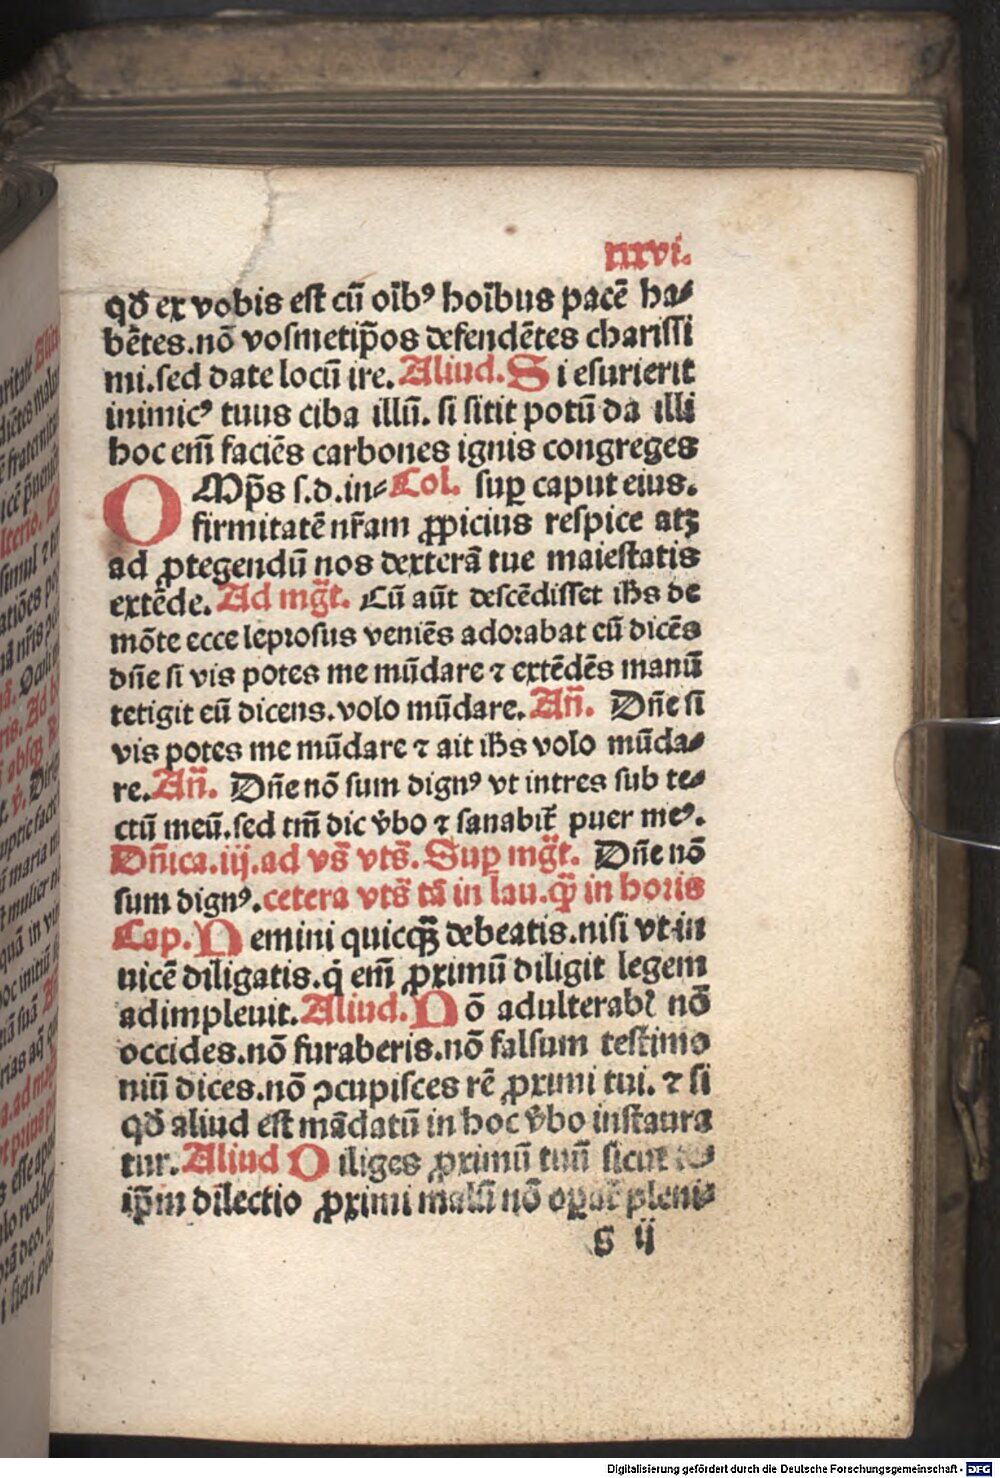 xxvi.
qđ ex vobis est cū oīb⁹ hoībus pacē ha⸗
bētes.nō vosmetip̄os defendētes charissi
mi.sed date locū ire. Aliud. Si esurierit
inimic⁹ tuus ciba illū. si sitit potū da illi
hoc em̄ faciēs carbones ignis congreges
OMp̄s s.d.in⸗ Col. suꝑ caput eius.
firmitatē nr̄am ꝓpicius respice atꝫ
ad ꝓtegendū nos dexterā tue maiestatis
extēde. Ad mg̃t. Cū aūt descēdisset ih̄s de
mōte ecce leprosus veniēs adorabat eū dicēs
dn̄e si vis potes me mūdare ⁊ extēdēs manū
tetigit eū dicens.volo mūdare. An̄. Dn̄e si
vis potes me mūdare ⁊ ait ih̄s volo mūda⸗
re. An̄. Dn̄e nō sum dign⁹ vt intres sub te⸗
ctū meū.sed tm̄ dic v̄bo ⁊ sanabit̄ puer me⁹.
Dn̄ica.iij.ad vs̄ vts̄. Suꝑ mg̃t. Dn̄e nō
sum dign⁹.cetera vts̄ tā in lau.qᷓ in horis
Cap. Nemini quicqᷓꝫ debeatis.nisi vt in
uicē diligatis.q̇ em̄ ꝓximū diligit legem
adimpleuit. Aliud. Nō adulterab̄ nō
occides.nō furaberis.nō falsum testimo
niū dices.nō ꝯcupisces rē ꝓximi tui. ⁊ si
qđ aliud est mādatū in hoc v̄bo instaura
tur. Aliud Diliges ꝓximū tuū sicut
ip̄m dilectio ꝓximi malū nō oꝑat̄ pleni⸗
s ij
Digitalisierung gefördert durch die Deutsche Forschungsgemeinschaft - DFG